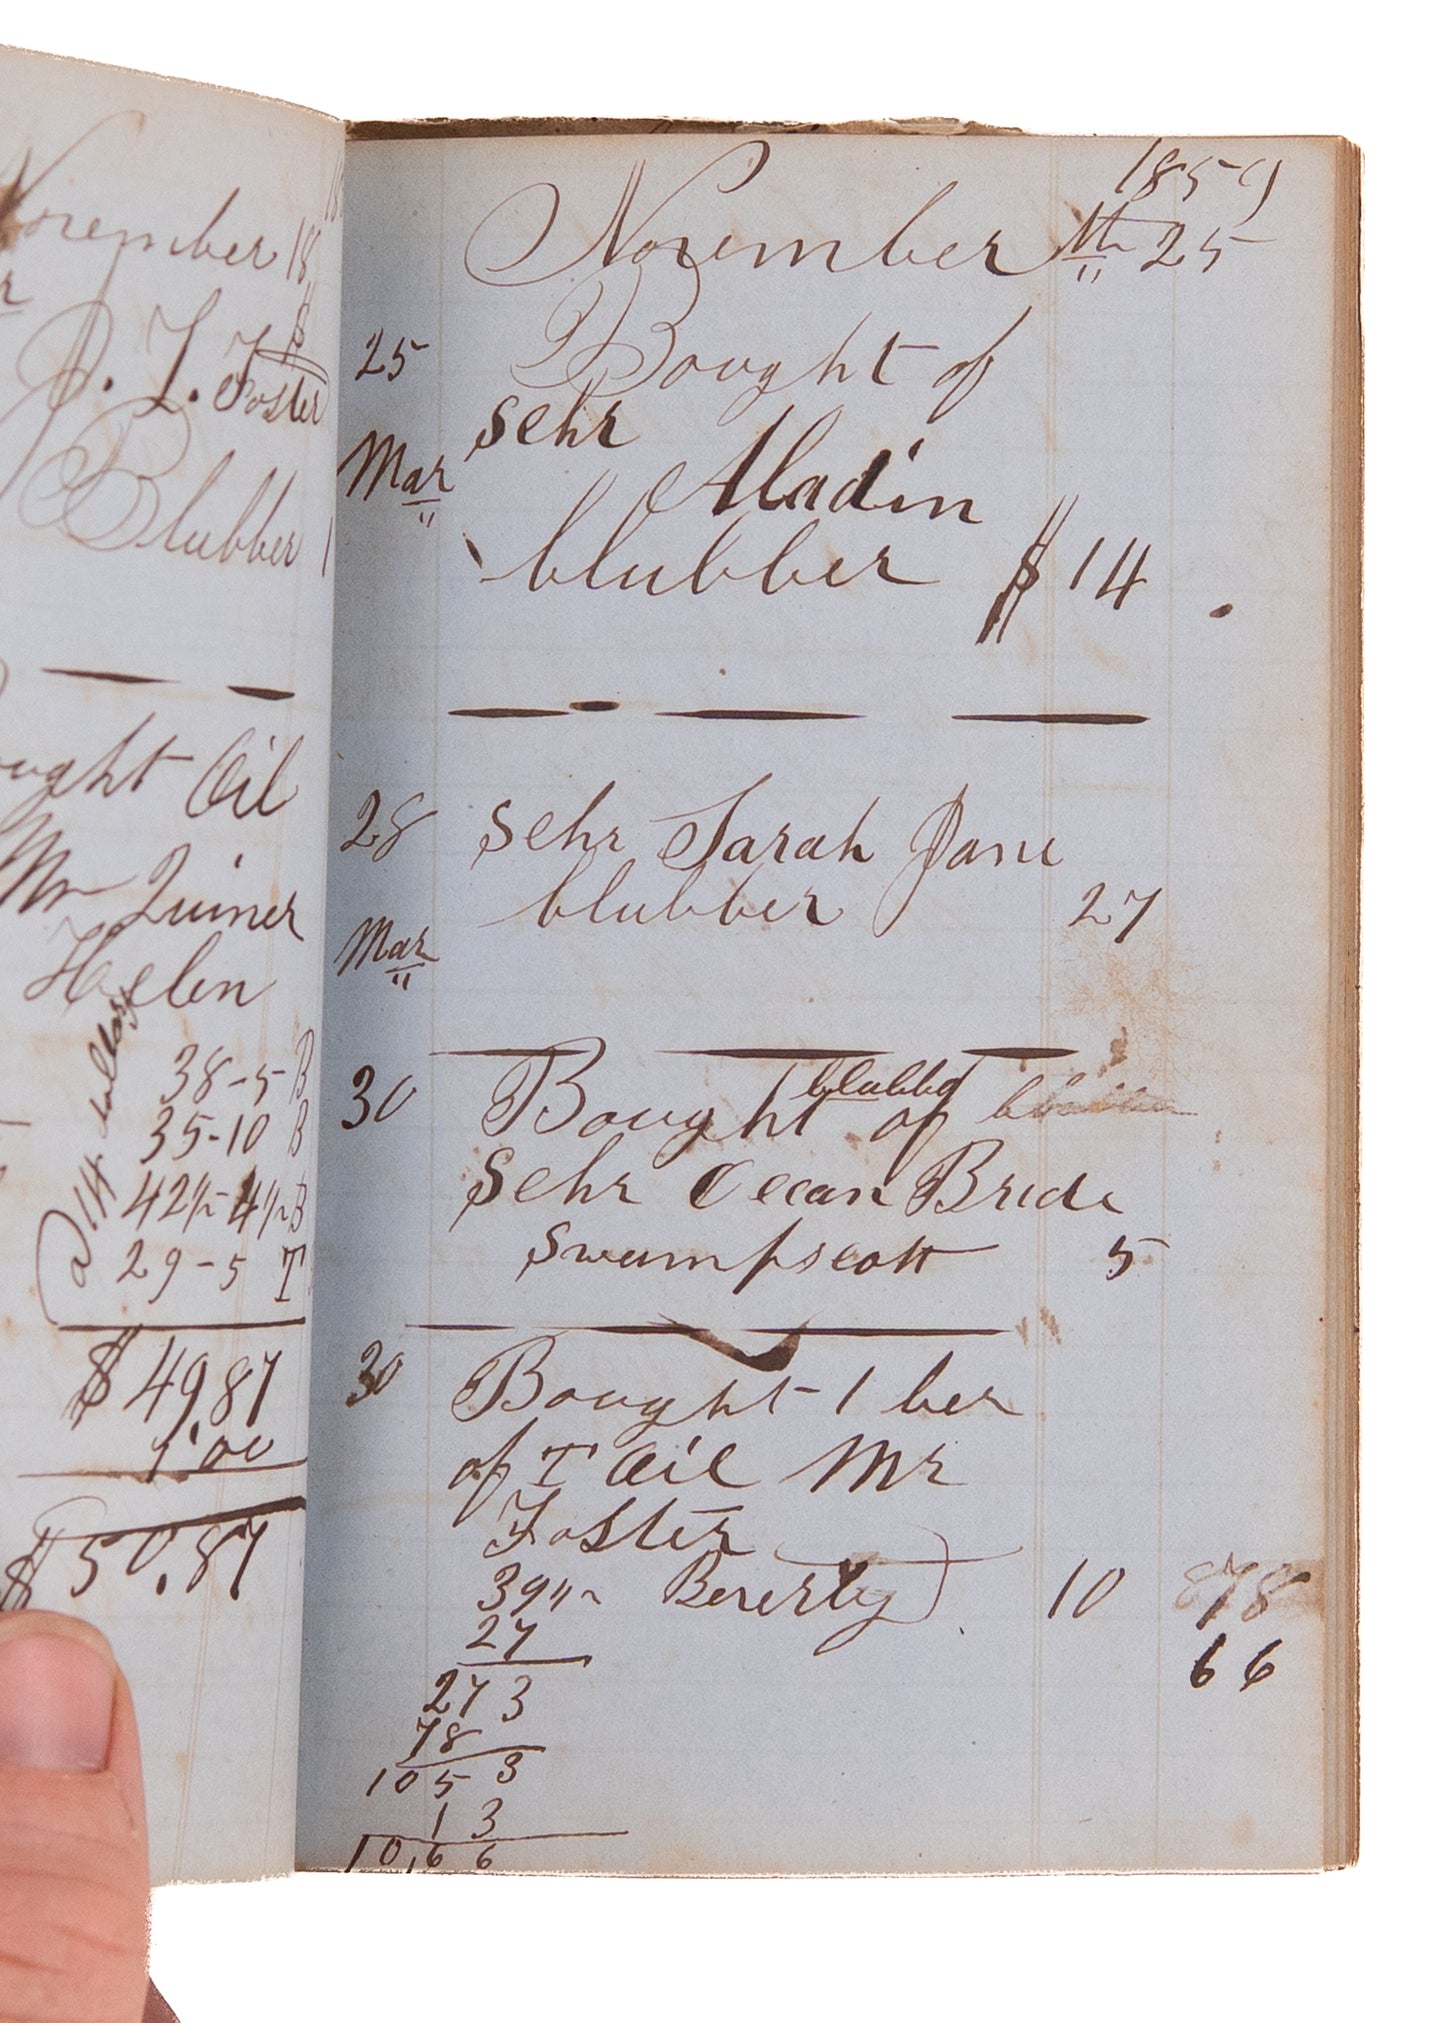 November 18
J. L. Foster
Blubber
ought Oil
Mr Quiner
Helen
38-5 B
35-10 B
42½-4½ B
29-5 T
@ 14 dollars
$ 49,87
1.00
$ 50.87
1859
November 25
25 Bought of
Schr
Mar Aladin
blubber $ 14
28 Schr Sarah Jane
blubber 27
Mar
30 Bought blubber of
Schr Ocean Bride
Swampscott 5
30 Bought 1 ber
of T Oil Mr
Foster
39½ Beverly) 10 878
27 66
273
78
1053
13
10,66